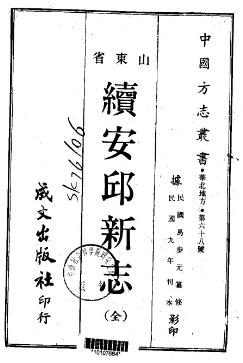 中國方志叢書・華北地方・第六十八號
據 民國馬步元纂修
民國九年刊本 影印
山東省
續安邱新志
(全)
成文出版社印行
SK76/06
*10107664*